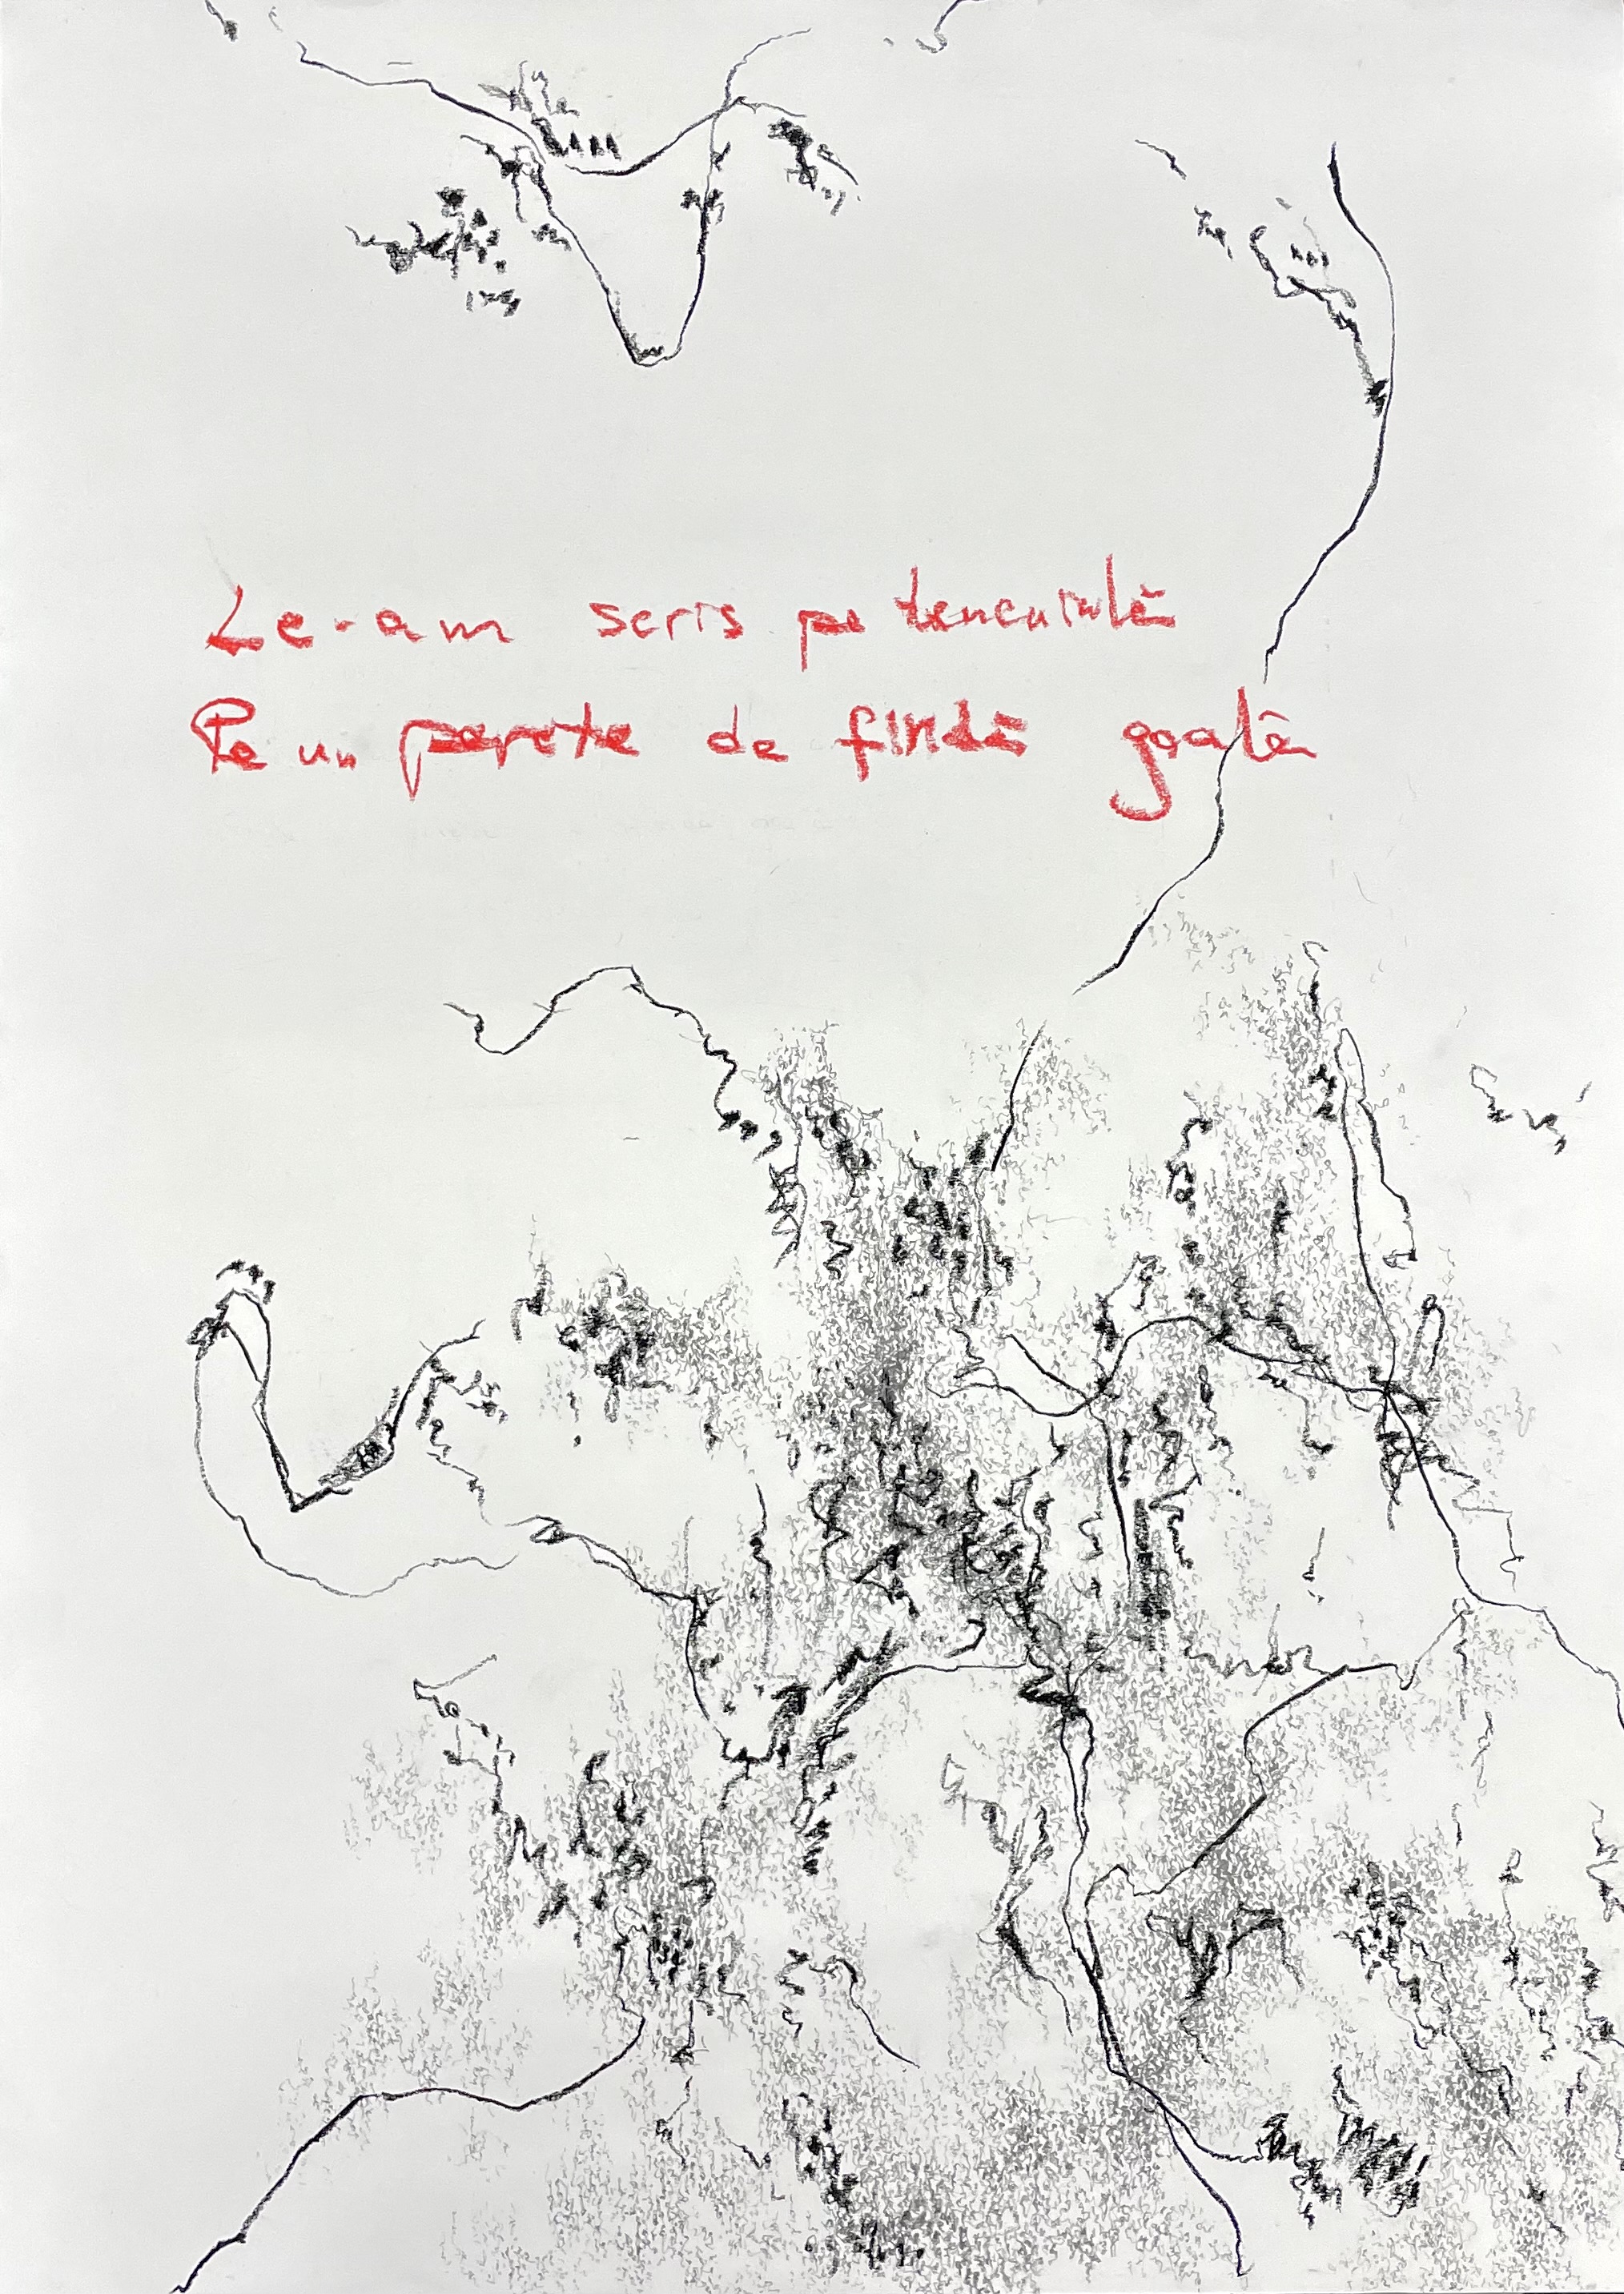 Le-am scris pe tencuială
Pe un perete de firidă goală